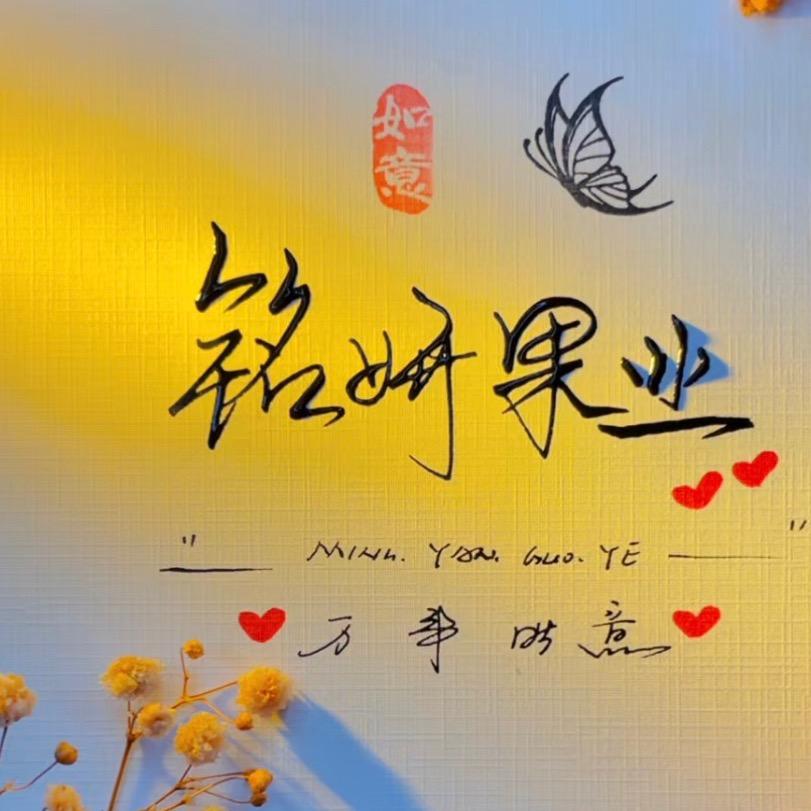 如意
铭妍果业
" MING. YAN. GUO. YE "
万事胜意